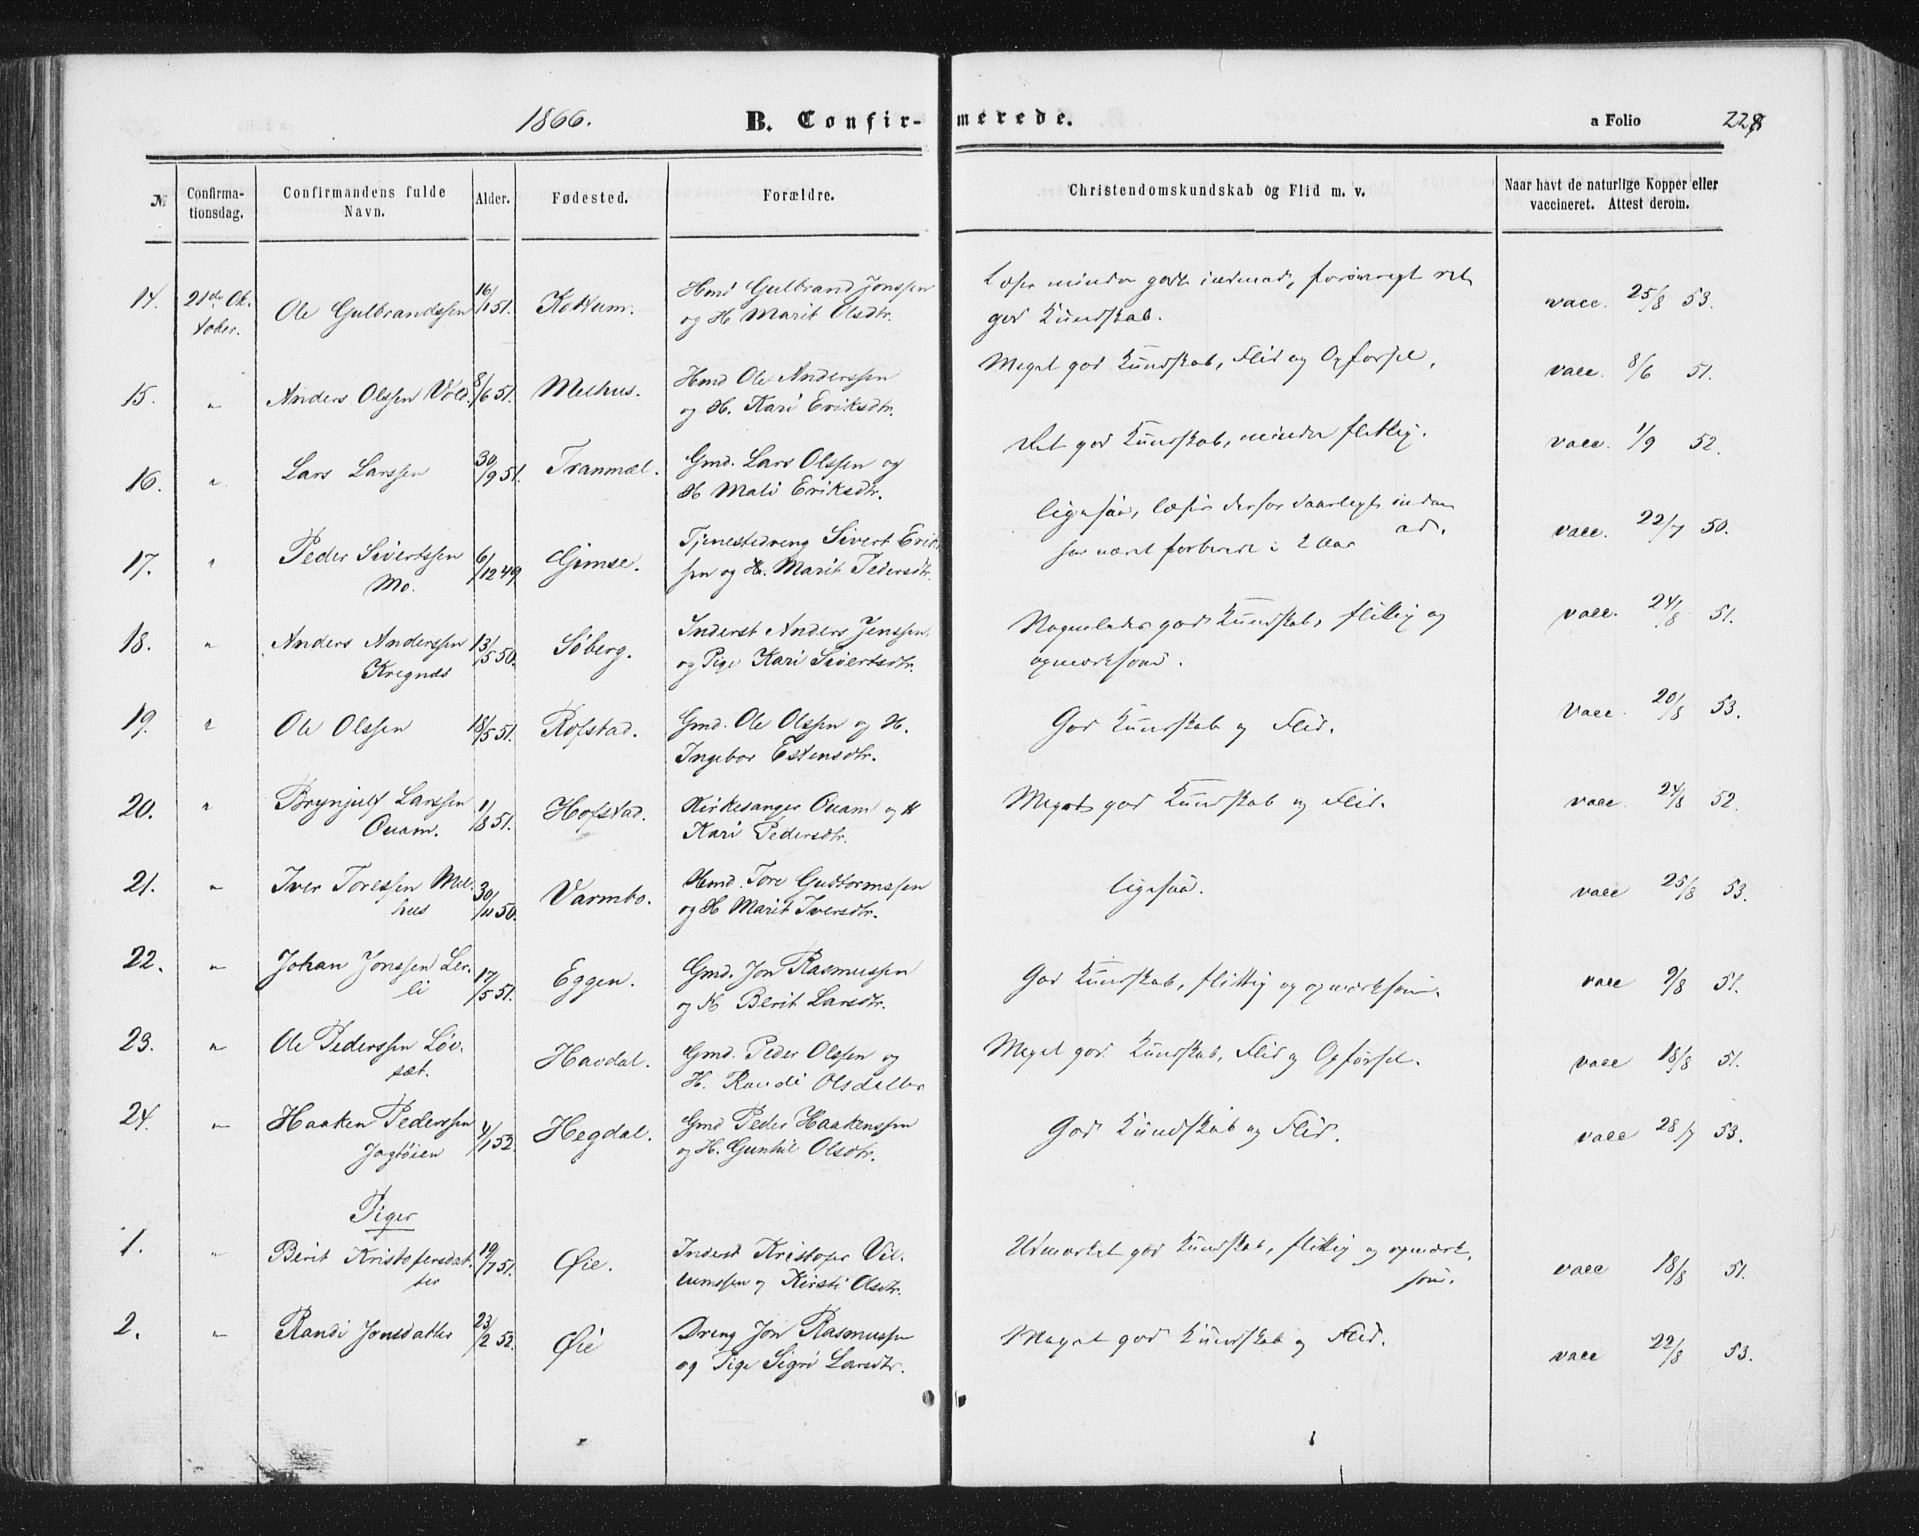 1866. B. Confirmerede. a Folio 228
№ Confirmationsdag. Confirmandens fulde Navn. Alder. Fødested. Forældre. Christendomskundskab og Flid m. v. Naar havt de naturlige Kopper eller vaccineret. Attest derom.
14. 21de Oktober. Ole Gulbrandssen 16/1 51. Kottum. Hmd Gulbrand Jonssen og H Marit Olsdtr. Læser mindre godt indenad, forøvrigt ret god Kundskab. vacc. 25/8 53.
15. " Anders Olssen Vold. 8/6 51. Melhus. Hmd Ole Anderssen og H. Kari Eriksdtr. Meget god Kundskab, Flid og Opførsel. vacc. 8/6 51.
16. " Lars Larssen 30/9 51. Tranmæl. Gmd. Lars Olssen og H Mali Eriksdtr. Ret god Kundskab, mindre flittig. vacc. 1/9 52.
17. " Peder Sivertssen Mo. 6/12 49. Gimse. Tjenestedreng Sivert Erikssen og H. Marit Pedersdtr. ligesaa, læser derfor daarligt indenad. har været forberedt i 2 Aar vacc. 22/7 50.
18. " Anders Anderssen Kregnæs 13/5 50. Søberg. Inderst Anders Jenssen og Pige Kari Sivertsdtr. Nogenledes god Kundskab, flittig og opmærksom. vacc. 24/8 51.
19. " Ole Olssen 18/5 51. Rofstad. Gmd. Ole Olssen og H. Ingebor Estensdtr. God Kundskab og Flid. vacc. 20/8 53.
20. " Brynjulf Larssen Qvam. 1/8 51. Hofstad. Kirkesanger Qvam og H Kari Pedersdtr. Meget god Kundskab og Flid. vacc. 24/8 52.
21. " Iver Toressen Melhus 30/11 50. Varmbo. Hmd. Tore Guttormssen og H Marit Iversdtr. ligesaa. vacc 25/8 53.
22. " Johan Jonssen Lerli 17/5 51. Eggen. Gmd. Jon Rasmussen og H Berit Larsdtr. God Kundskab, flittig og opmærksom. vacc 9/8 51.
23. " Ole Pederssen Løvsæt. Havdal. Gmd. Peder Olssen og H. Randi Olsdatter Meget god Kundskab, Flid og Opførsel. vacc 18/8 51.
24. " Haaken Pederssen Jagtøien 4/1 52. Hegdal. Gmd Peder Haakenssen og H. Gunhil Olsdtr. God Kundskab og Flid. vacc 28/7 53.
Piger
1. " Berit Kristofersdatter 19/7 51. Øie. Inderst Kristofer Villumssen og Kirsti Olsdtr. Udmærket god Kundskab, flittig og opmærksom. vacc 18/8 51.
2. " Randi Jonsdatter 23/2 52. Øie Dreng Jon Rasmussen og Pige Sigri Larsdtr. Meget god Kundskab og Flid. vacc 22/8 53.